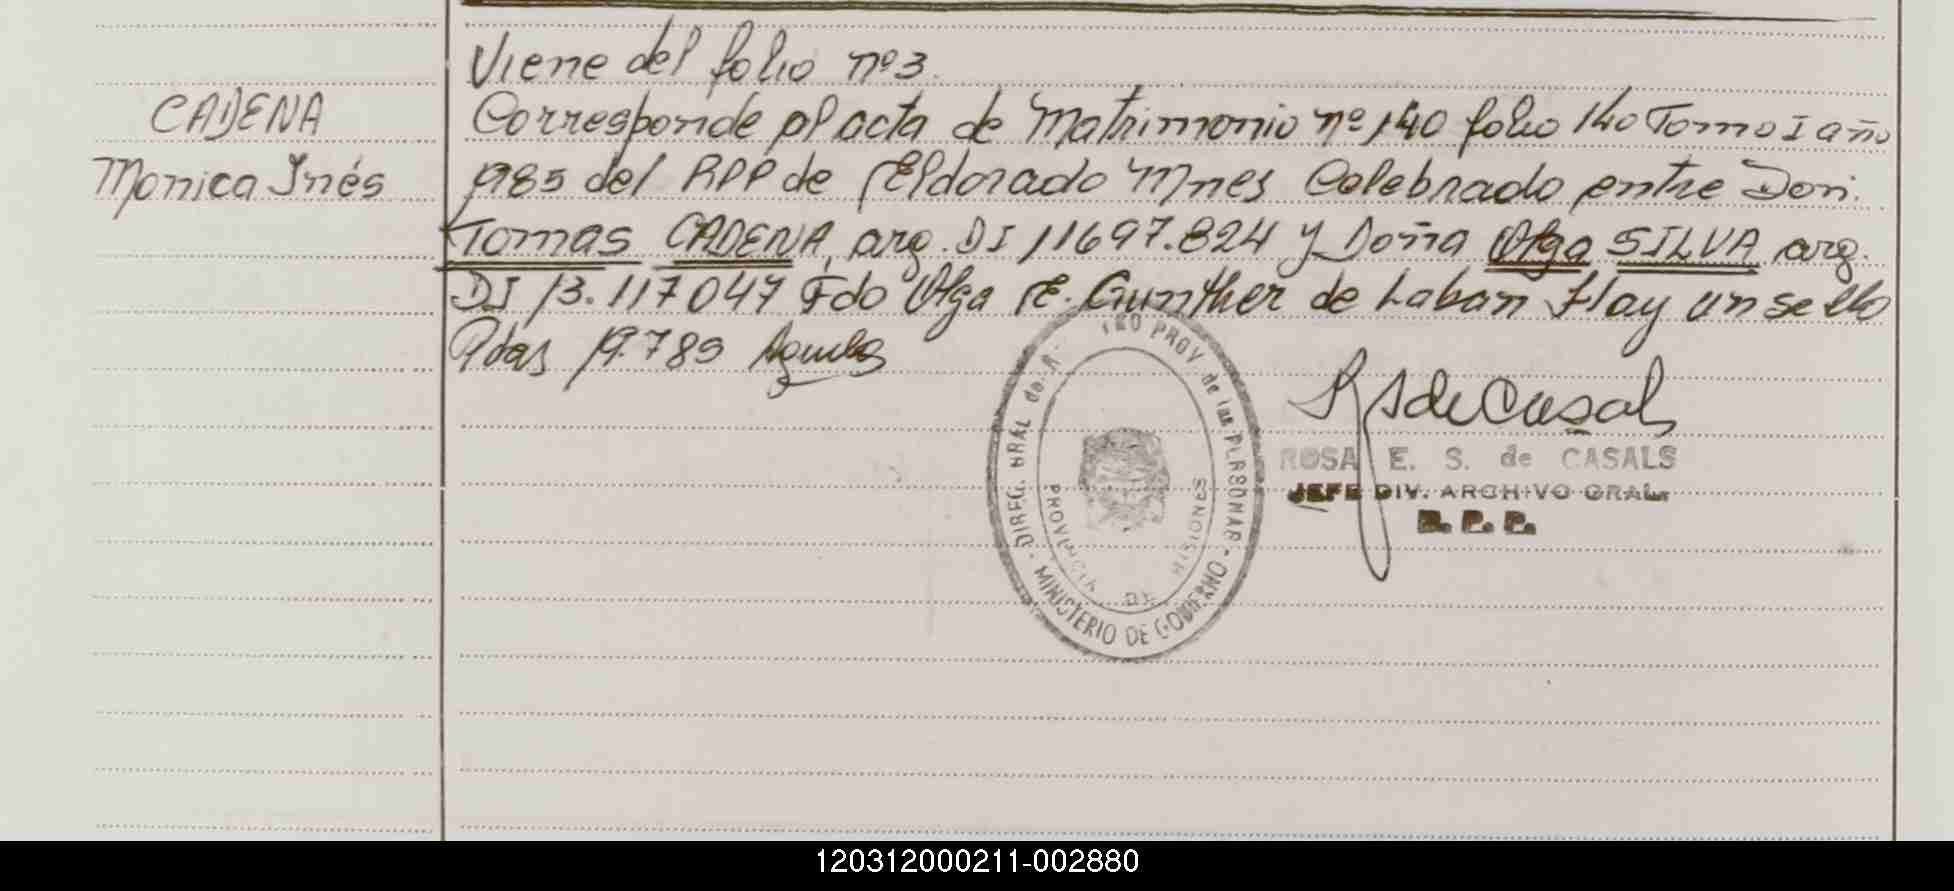 Viene del folio nº3.
CADENA
Monica Inés
Corresponde pl acta de Matrimonio nº 140 folio 140 Tomo I año
1985 del RPP de Eldorado Mnes Celebrado entre Don.
Tomas CADENA, arg. DI 11697.824 y Doña Olga SILVA arg.
DI 13.117047 Fdo Olga E. Gunther de Laban Hay un sello
Pdas 19.789
ROSA E. S. de CASALS
JEFE DIV. ARCHIVO GRAL.
R. P. P.
DIREC. GRAL de PROV. de las PERSONAS
MINISTERIO DE GOBIERNO
PROVINCIA DE MISIONES
120312000211-002880